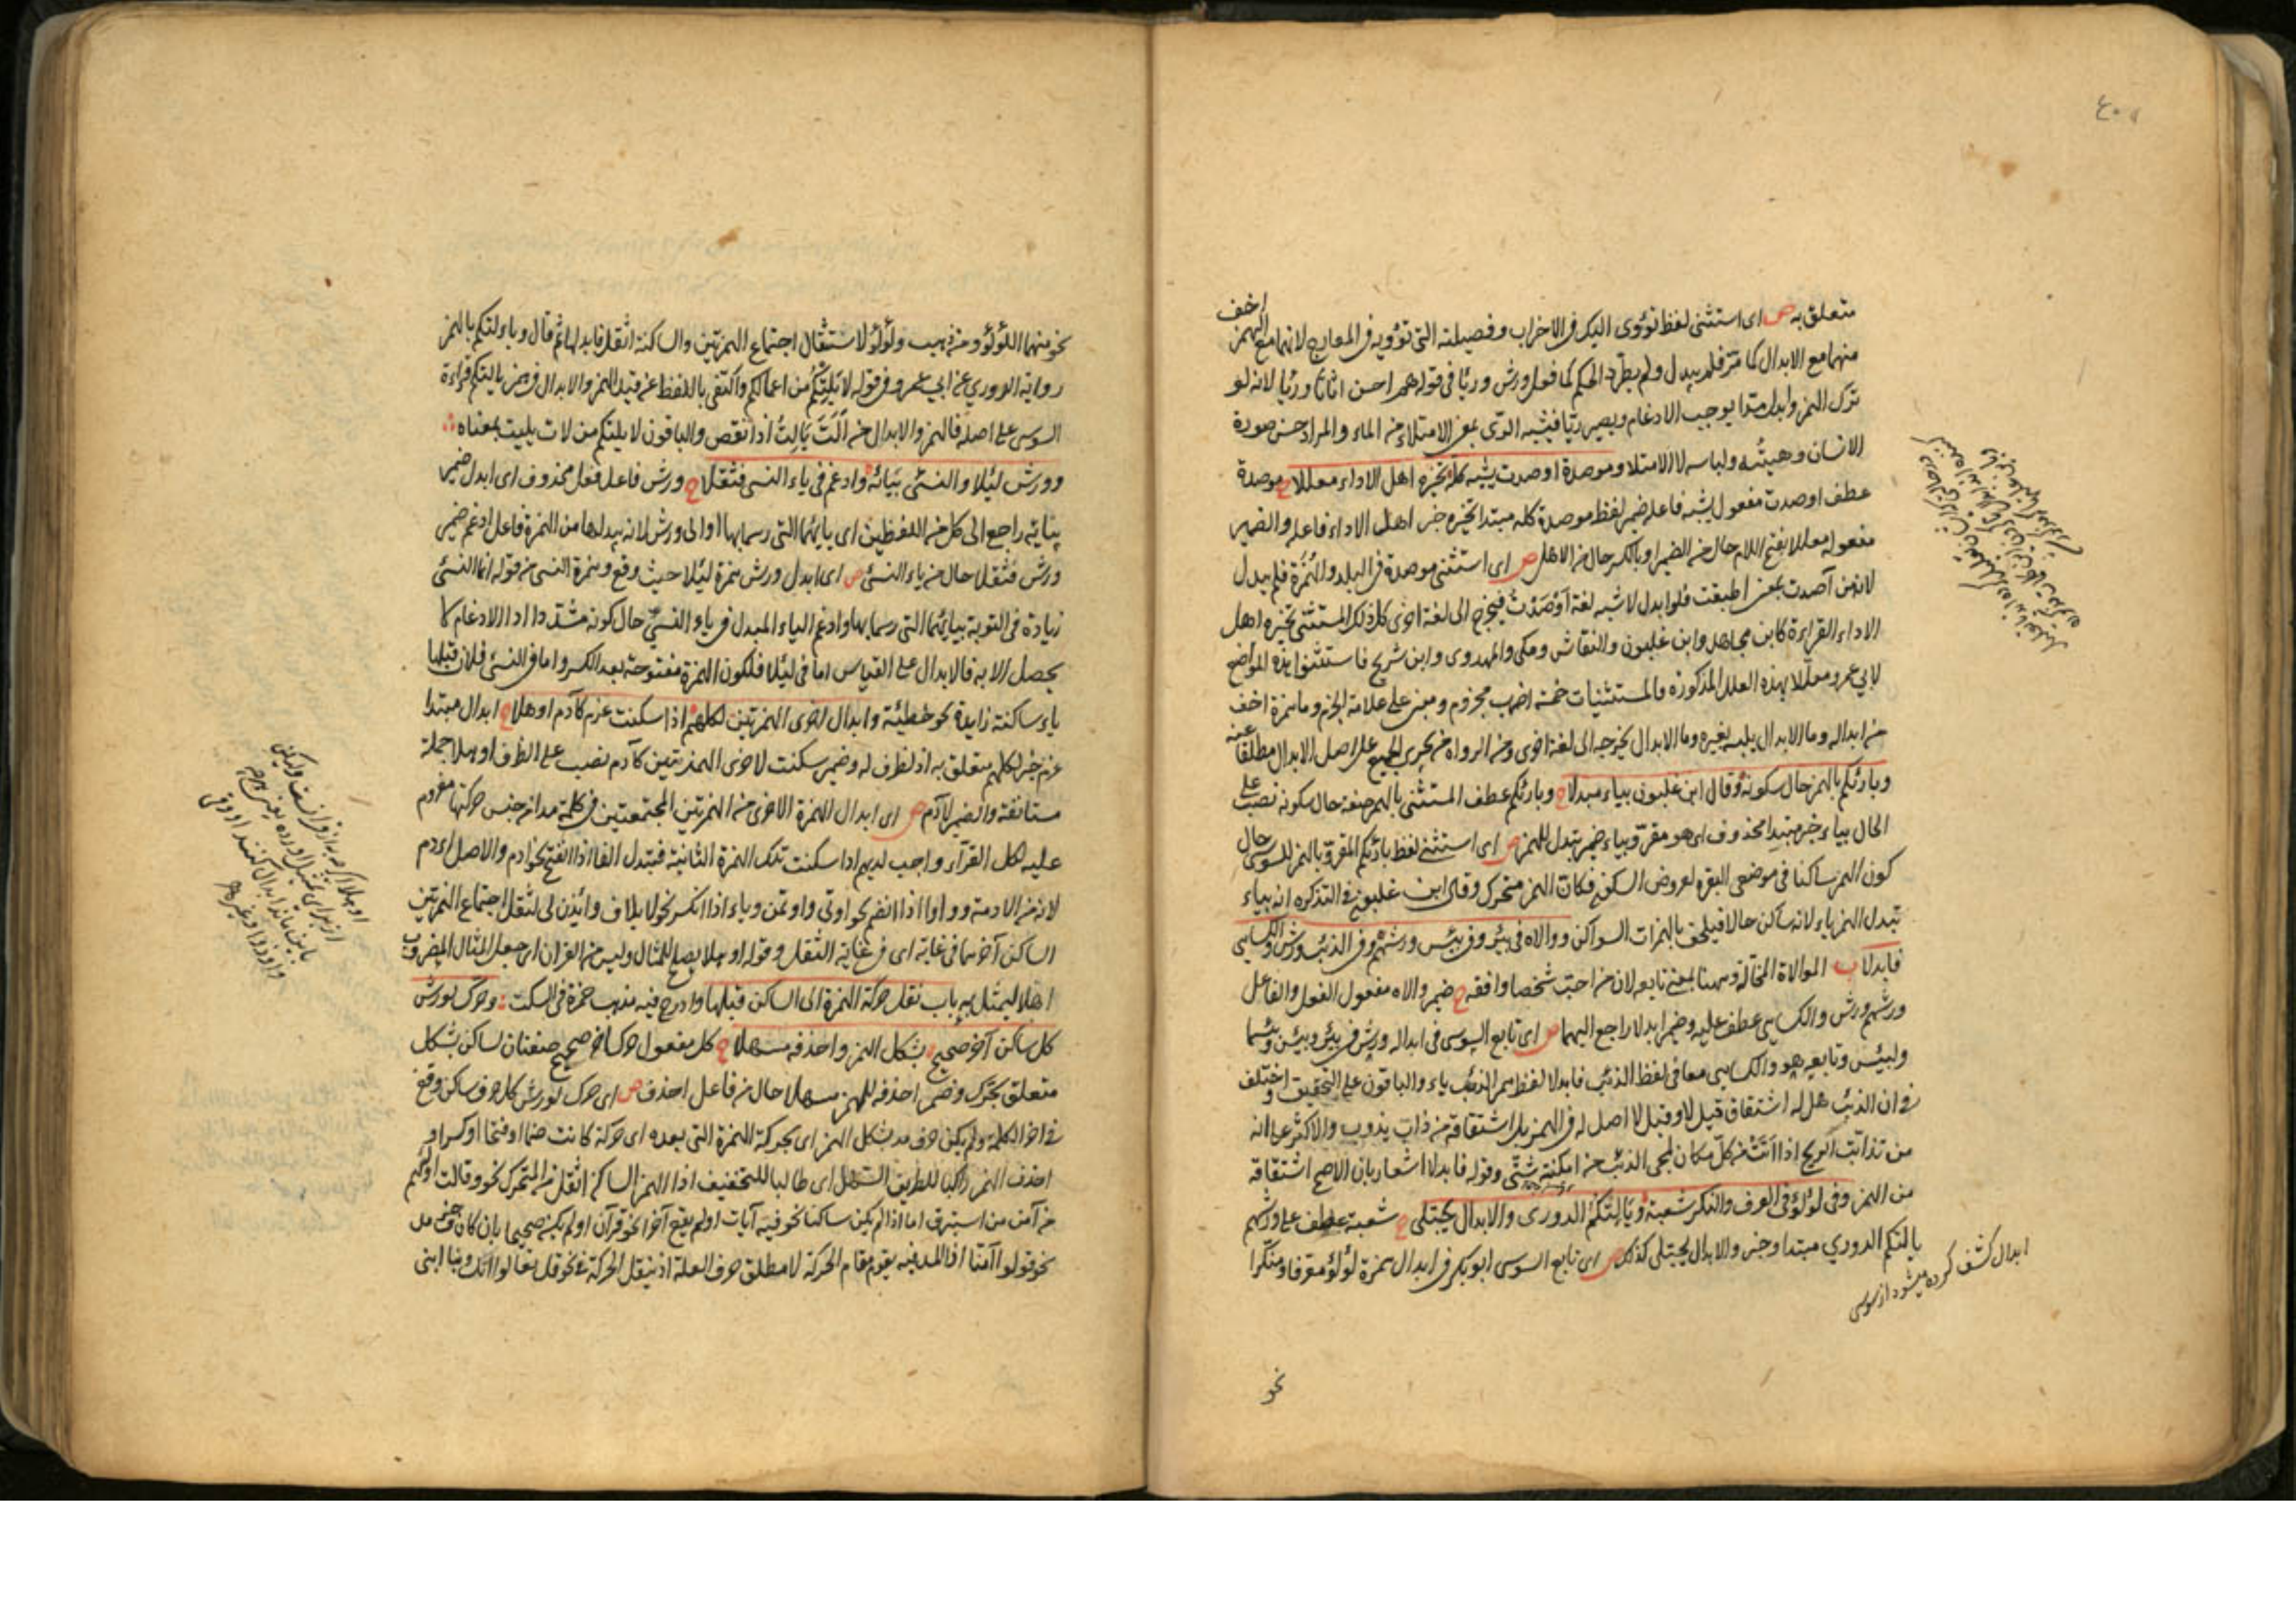 متعلق به ص اى استثنى لفظ تؤوى اليك فى الاحزاب وفصيلته التى تؤويه فى المعارج لانهما مع الهمز اخف
منهما مع الابدال كما مر فلم يبدل ولم يطرد الحكم كما فعل ورش ورئيا فى قوله هم احسن اثاثا ورئيا لانه لو
ترك الهمز وابدل مدا يوجب الادغام ويصير ريّا فيشبه الرّى بمعنى الامتلاء من الماء والمراد حسن صورة
الانسان وهيئته ولباسه لا الامتلا وموصدة اوصدت يشبه كله تخيره اهل الاداء معللا ح موصدة
عطف اوصدت مفعول يشبه فاعله ضمير لفظ موصدة كله مبتدا تخيره خبر اهل الاداء فاعله والضمير
مفعوله معللا بفتح اللام حال من الضمير او بالكسر حال من الاهل ص اى استثنى موصدة فى البلد والهمزة فلم يبدل
لانه من آصدت بمعنى اطبقت فلو ابدل لاشبه لغة اَوْصَدْتُ فيخرج الى لغة اخرى كل ذلك المستثنى تخيره اهل
الاداء القراءة كابن مجاهد وابن غلبون والنقاش ومكى والمهدوى وابن شريح فاستثنوا هذه المواضع
لابى عمرو معللا بهذه العلل المذكورة فالمستثنيات خمسة اضرب مجزوم ومبنى على علامة الجزم وما همزه اخف
من ابداله وما الابدال يلبسه بغيره وما الابدال يخرجه الى لغة اخرى ومن الرواة من يجرى الجميع على اصل الابدال مطلقا عنه
وبارئكم بالهمز حال سكونه وقال ابن غلبون بياء مبدلا ح وبارئكم عطف المستثنى بالهمز صفة حال سكونه نصب على
الحال بياء خبر مبتدا محذوف اى هو مقرو بياء ضمير تبدل للهمز ص اى استثنى لفظ بارئكم المقرو بالهمز للسوسى حال
كون الهمز ساكنا فى موضعى البقره لعروض السكون فكان الهمز متحرك وقال ابن غلبون فى التذكره انه بياء
تبدل الهمز ياء لانه ساكن حالا فيلحق بالهمزات السواكن ووالاه فى بئر وفى بئس ورشهم وفى الذئب ورش والكسايى
فابدلا ب الموالاة المخالّة وههنا بمعنى تابعه لان من احب شخصا وافقه ح ضمير والاه مفعول الفعل والفاعل
ورشهم ورش والكسايى عطف عليه وضمير ابدلا راجع اليهما ص اى تابع السوسى فى ابداله ورش فى بئر وبئس وبئسما
ولبئس وتابعه هو والكسايى معا فى لفظ الذئب فابدلا لفظ همز الذئب ياء والباقون على التحقيق واختلف
فى ان الذئب هل له اشتقاق قيل لا وقيل لا اصل له فى الهمز بل اشتقاقه من ذاب يذوب والاكثر على انه
من تذأبت الريح اذا اتت من كل مكان لمجى الذئب من امكنة شتى وقوله فابدلا اشعار بان الاصح اشتقاقه
من الهمز وفى لؤلؤ فى العرف والنكر شعبة ويألتكم الدورى والابدال يجتلى ح شعبة عطف على ورشهم
يالتكم الدوري مبتدا وخبر والابدال يجتلى كذلك ص اى تابع السوسى ابو بكر فى ابدال همزة لؤلؤ معرفا ومنكرا
ابدال كشف كرده ميشود از سوسى
نحو
نحو منهما اللؤلؤ ومن ذهب ولؤلؤ لاستثقال اجتماع الهمزتين والساكنة اثقل فابدلها ثم قال ويالتكم بالهمز
رواية الدوري عن ابي عمرو فى قوله لا يَلِتْكُم من اعمالكم واكتفى باللفظ عن قيد الهمز والابدال فى همز يالتكم قراءة
السوسى على اصله فالهمز والابدال من اَلَتَ يَالِتُ اذا نقص والباقون لا يلتكم من لات يليت بمعناه
وورش لئلا والنسئ بيائه وادغم فى ياء النسى فثقلا ح ورش فاعل فعل محذوف اى ابدل ضمير
بيائه راجع الى كل من اللفظين اى بايهما التى رسما بها او الى ورش لانه يبدلها من الهمزة فاعل ادغم ضمير
ورش فثقلا حال من ياء النسئ ص اى ابدل ورش همزة لئلا حيث وقع وهمزة النسى من قوله انما النسئ
زيادة فى التوبة بيائهما التى رسما بها وادغم الياء المبدل فى ياء النسئ حال كونه مشددا اذ الادغام لا
يحصل الا به فالابدال على القياس اما فى لئلا فلكون الهمزة مفتوحة بعد الكسر واما فى النسئ فلان قبلها
ياء ساكنة زايدة نحو خطيئة وابدال اخرى الهمزتين لكلهم اذا سكنت عزم كآدم اوهلا ح ابدال مبتدا
عزم خبر لكلهم متعلق به اذ لظرف له وضمير سكنت لاخرى الهمزتين كآدم نصب على الظرف اوهلا جملة
مستانفة والضمير لآدم ص اى ابدال الهمزة الاخرى من الهمزتين المجتمعتين فى كلمة مدا من جنس حركتها معزوم
عليه لكل القرآء واجب لديهم اذا سكنت تلك الهمزة الثانية فتبدل الفا اذا انفتح نحو ادم والاصل اءدم
لانه من الادمة وواوا اذا انضم نحو اوتى واوتمن وياء اذا انكسر نحو لايلاف وائذن لى لثقل اجتماع الهمزتين
الساكن آخرهما فى غاية اى فى غاية الثقل وقوله اوهلا يصلح للمثال وليس من القران اى جعل المثال المضروب
اهلا ليمثل به باب نقل حركة الهمزة الى الساكن قبلها وادرج فيه مذهب حمزة فى السكت وحرك لورش
كل ساكن آخر صحيح بشكل الهمز واحذفه مسهلا ح كل مفعول حرك اخر صحيح صفتان لساكن بشكل
متعلق بحرك وضمير احذفه للهمز مسهلا حال من فاعل احذف ص اى حرك لورش كل حرف ساكن وقع
فى اخر الكلمة ولم يكن حرف مد بشكل الهمز اى بحركة الهمزة التى بعده اى حركة كانت ضما او فتحا او كسرا و
احذف الهمز راكبا للطريق السهل اى طالبا للتخفيف اذا الهمز الساكن اثقل من المتحرك نحو وقالت اولاهم
من آمن من استبرق اما اذا لم يكن ساكنا نحو فيه آيات او لم يقع آخرا نحو قرآن او لم يكن صحيحا بان كان حرف مد
نحو قولوا آمنا اذ المد فيه يقوم مقام الحركة لا مطلق حرف العلة اذ ينقل الحركة فى نحو قل تعالوا اتل ونبا ابنى